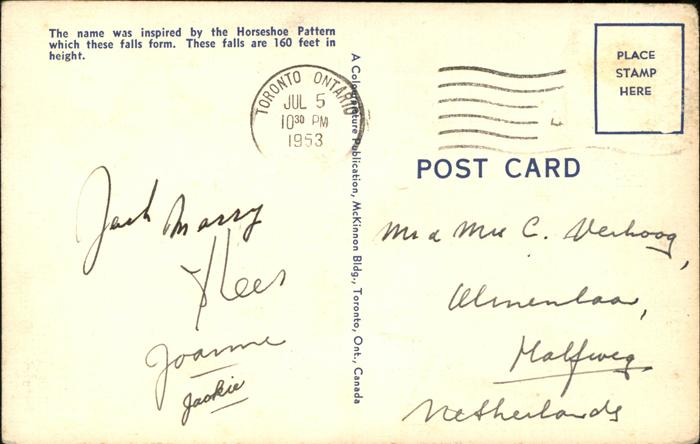 The name was inspired by the Horseshoe Pattern
which these falls form. These falls are 160 feet in
height.
TORONTO ONTARIO
JUL 5
10³⁰ PM
1953
PLACE
STAMP
HERE
A Colourpicture Publication, McKinnon Bldg., Toronto, Ont., Canada
POST CARD
Jack Marry
Kees
Joanne
Jackie
Mr & Mrs C. Verhoog,
Olmenlaan,
Halfweg
Netherlands